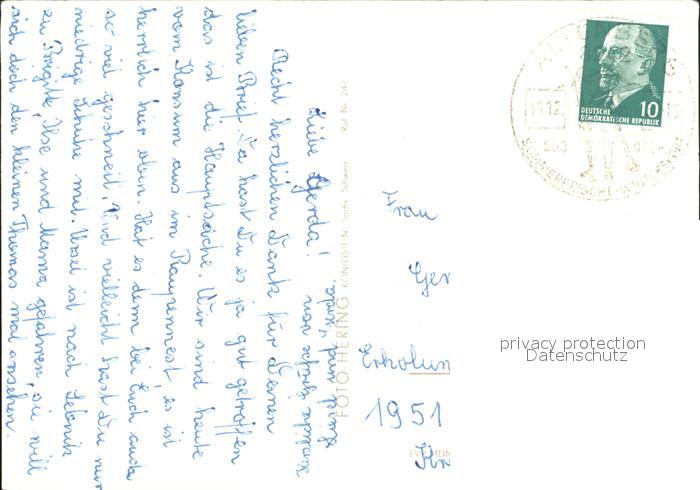 Liebe Gerda!
Recht herzlichen Dank für Deinen
lieben Brief. Da hast Du es ja gut getroffen
das ist die Hauptsache. Wir sind heute
vom Konsum aus im Raupennest, es ist
herrlich hier oben. Hat es denn bei Euch auch
so viel geschneit, und vielleicht hast Du nur
niedrige Schuhe mit. Ursel ist nach Sebnitz
zu Brigitte, Ilse und Mama gefahren, sie will
sich doch den kleinen Thomas mal ansehen.
von
und
FOTO HERING KÖNIGSTEIN Sächs. Schweiz Ruf Nr. 242
Frau
Ger
Erholun
1951
Kr
DEUTSCHE
DEMOKRATISCHE REPUBLIK
10
11.12.
privacy protection
Datenschutz